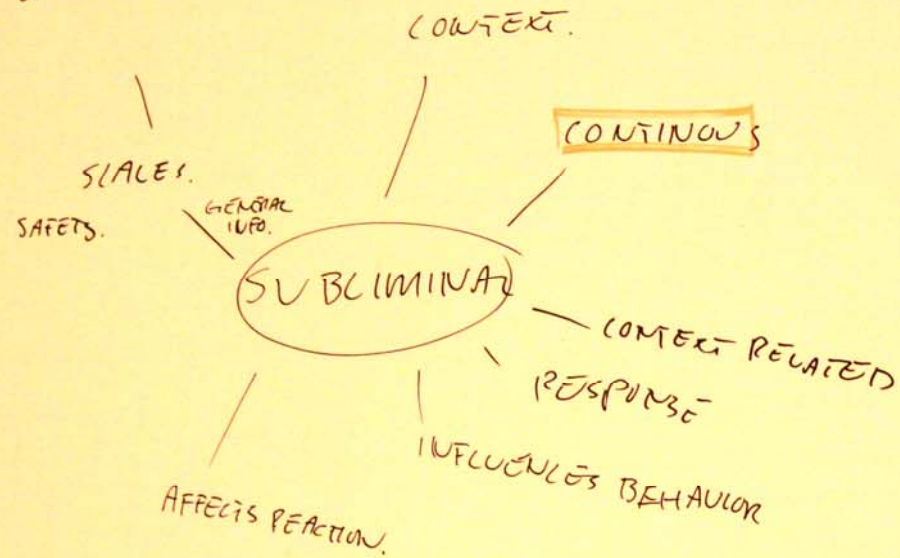 CONTEXT.
CONTINOUS
SCALES.
GENERAL
INFO.
SAFETY.
SUBLIMINAL
CONTEXT RELATED
RESPONSE
INFLUENCES BEHAVIOR
AFFECTS REACTION.